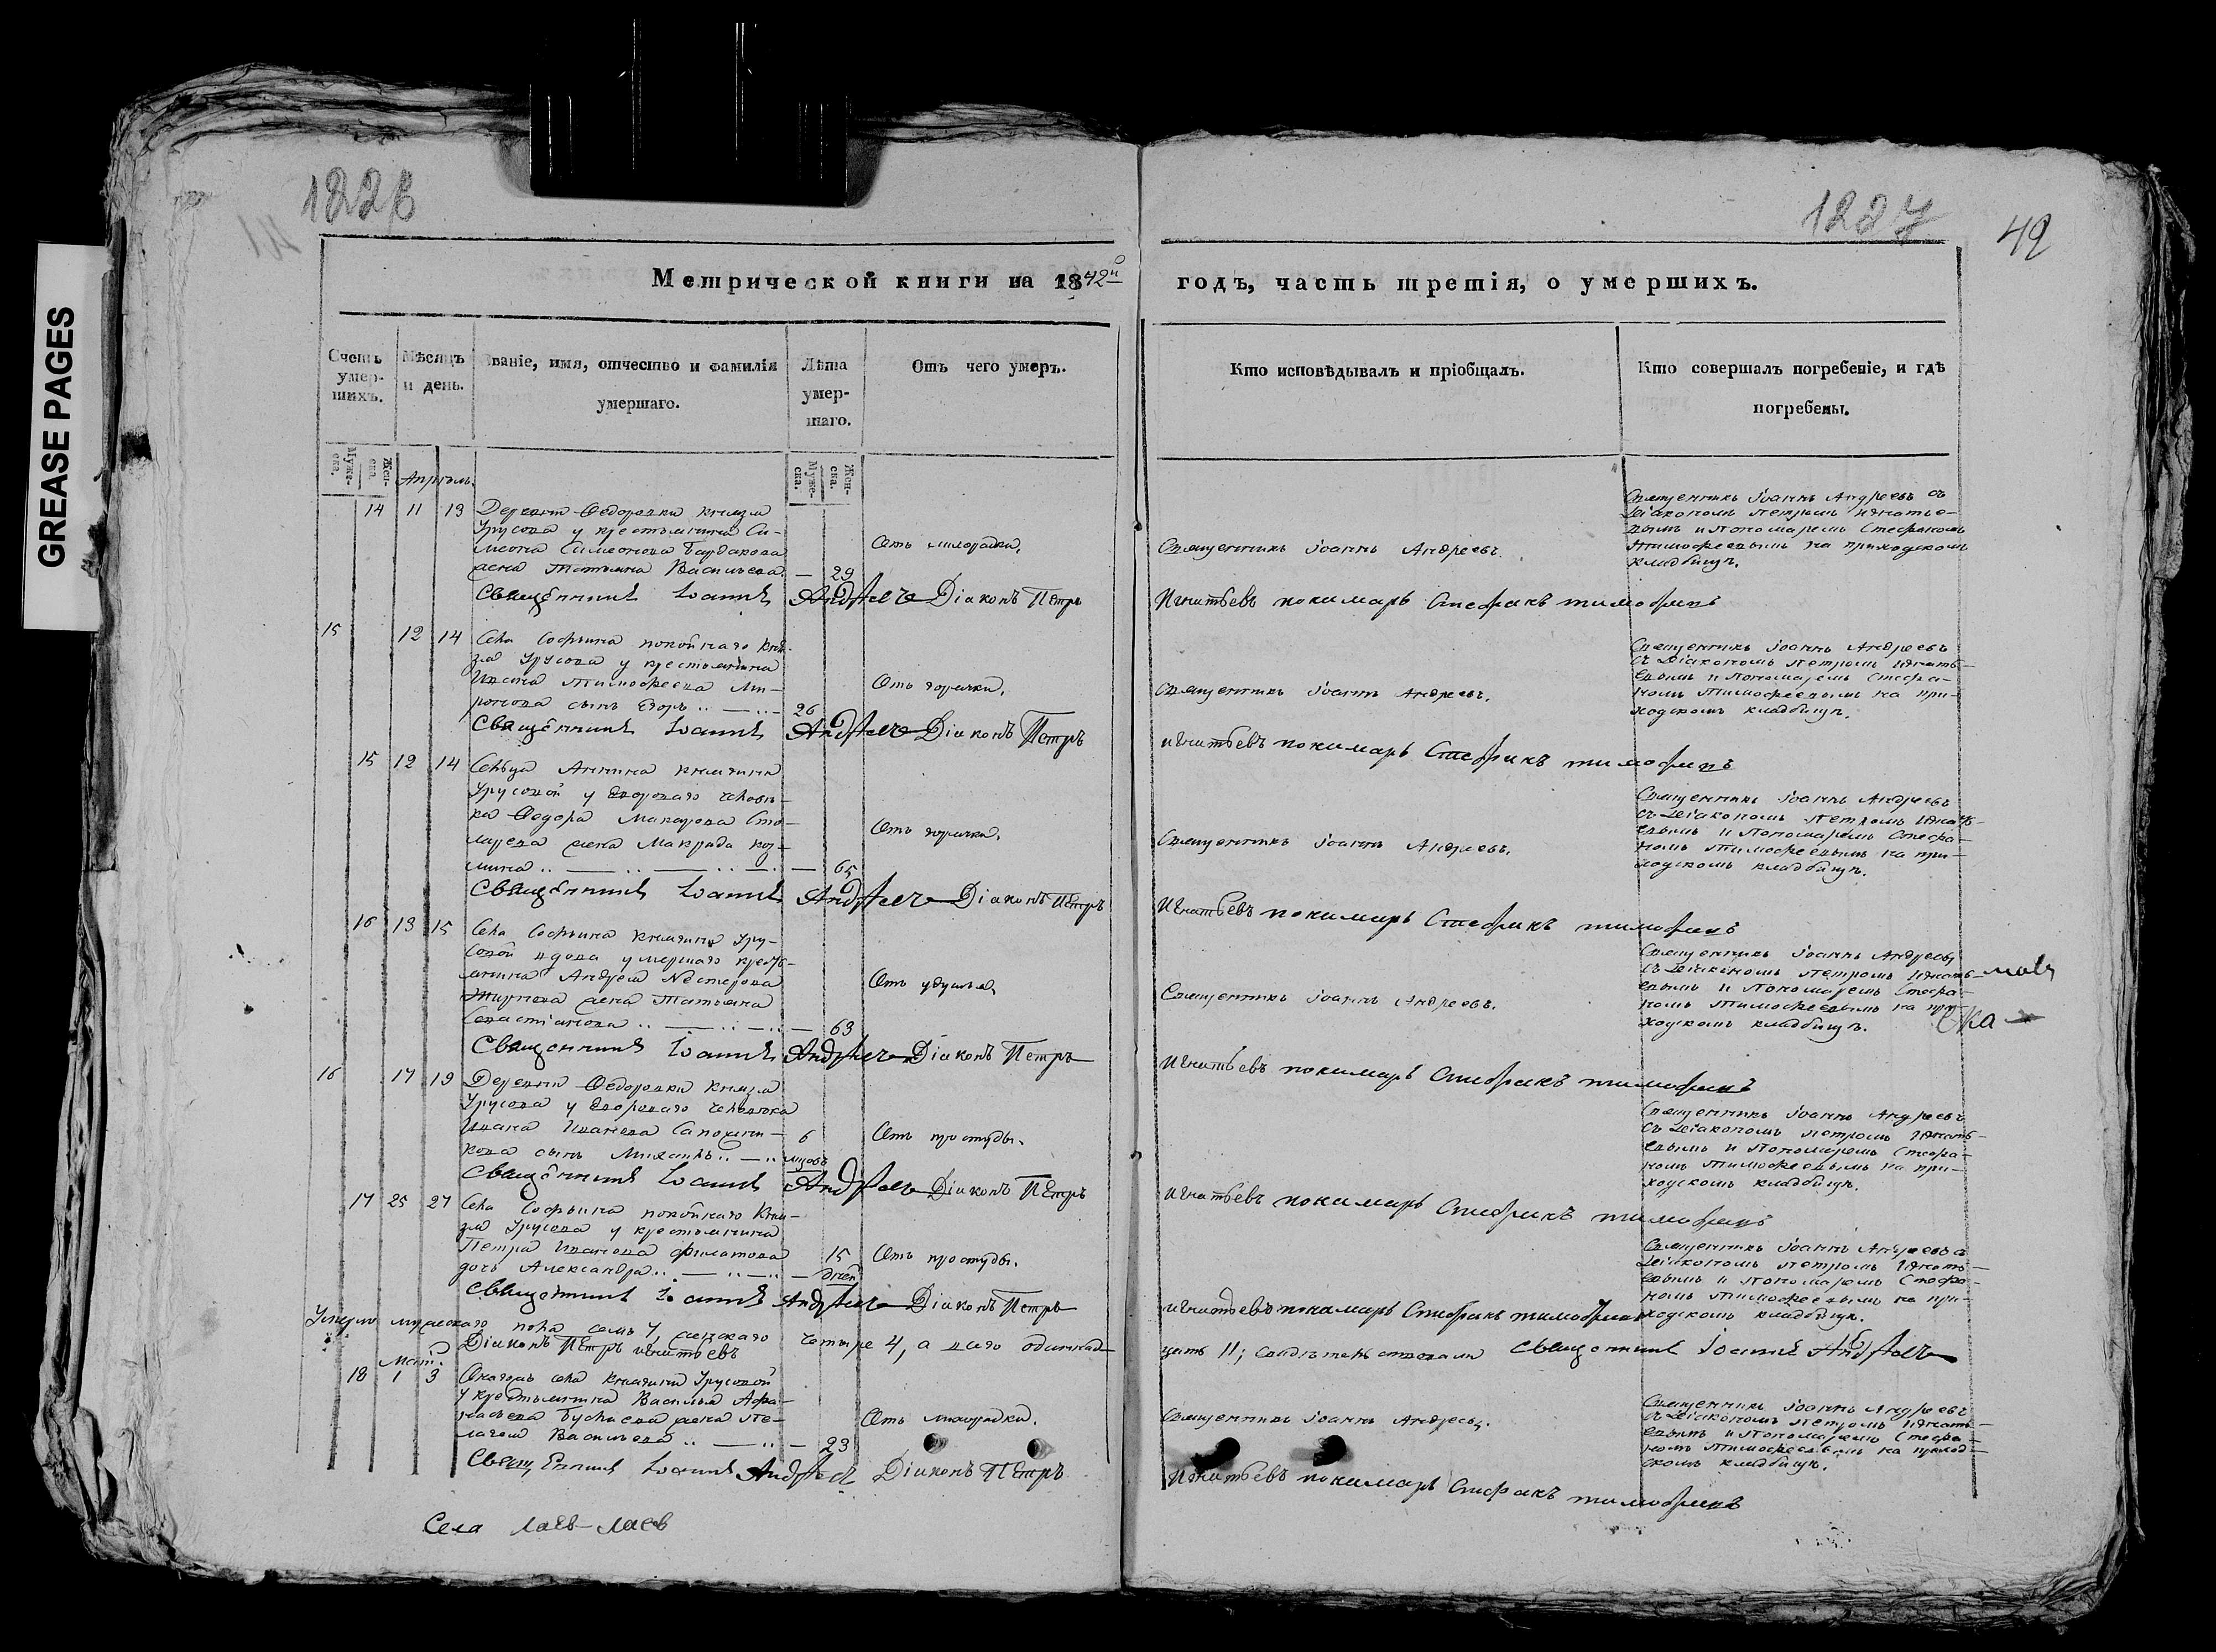 GREASE PAGES
1226
1227
42
41
Метрической книги на 1842й
годъ, часть третія, о умершихъ.
Счетъ умер-шихъ.
Мѣсяцъ и день.
Званіе, имя, отчество и фамилія умершаго.
Лѣта умер-шаго.
Отъ чего умеръ.
Кто исповѣдывалъ и пріобщалъ.
Кто совершалъ погребеніе, и гдѣ погребены.
Муже-ска.
Жен-ска.
Муже-ска.
Жен-ска.
Апрѣль.
14 11 13 Деревни Федоровки Князя
Урусова у крестьянина Си-
меона Симеонова Бардакова
жена Татьяна Васильева. — 29
Отъ лихорадки.
Священникъ Іоаннъ Андреевъ.
Священникъ Іоаннъ Андреевъ съ
Діакономъ Петромъ Игнатье-
вымъ и Пономаремъ Стефаномъ
Тимофеевымъ на приходскомъ
кладбищѣ.
Священникъ Іоаннъ Андреевъ Діаконъ Петръ
Игнатьевъ пономарь Стефанъ тимофеевъ
15 12 14 Села Софьина покойнаго Кня-
зя Урусова у крестьянина
Ивана Тимофеева Ми-
ронова сынъ Егоръ 26
Отъ горячки.
Священникъ Іоаннъ Андреевъ.
Священникъ Іоаннъ Андреевъ
съ Діакономъ Петромъ Игнать-
евымъ и Пономаремъ Стефа-
номъ Тимофеевымъ на при-
ходскомъ кладбищѣ.
Священникъ Іоаннъ Андреевъ Діаконъ Петръ
игнатьевъ пономарь Стефанъ тимофеевъ
15 12 14 Сельца Аннина Княгини
Урусовой у двороваго человѣ-
ка Федора Макарова Сто-
лярева жена Макрида Коз-
мина — 65
Отъ горячки.
Священникъ Іоаннъ Андреевъ.
Священникъ Іоаннъ Андреевъ
съ Діакономъ Петромъ Игнать-
евымъ и Пономаремъ Стефа-
номъ Тимофеевымъ на при-
ходскомъ кладбищѣ.
Священникъ Іоаннъ Андреевъ Діаконъ Петръ
Игнатьевъ пономарь Стефанъ тимофеевъ
16 13 15 Села Софьина Княгини Уру-
совой вдова умершаго кресть-
янина Андрея Нестерова
Жирнова жена Татьяна
Севастіанова — 63
Отъ удушья
Священникъ Іоаннъ Андреевъ.
Священникъ Іоаннъ Андреевъ
съ Діакономъ Петромъ Игнать-
евымъ и Пономаремъ Стефа-
номъ Тимофеевымъ на при-
ходскомъ кладбищѣ.
Священникъ Іоаннъ Андреевъ Діаконъ Петръ
Игнатьевъ пономарь Стефанъ тимофеевъ
16 17 19 Деревни Федоровки Князя
Урусова у двороваго человѣка
Ивана Иванова Сапожни-
кова сынъ Михаилъ 6 мцовъ
Отъ простуды.
Священникъ Іоаннъ Андреевъ
съ Діакономъ Петромъ Игнать-
евымъ и Пономаремъ Стефа-
номъ Тимофеевымъ на при-
ходскомъ кладбищѣ.
Священникъ Іоаннъ Андреевъ Діаконъ Петръ
игнатьевъ пономарь Стефанъ тимофеевъ
17 25 27 Села Софьина покойнаго Кня-
зя Урусова у крестьянина
Петра Иванова Филатова
дочь Александра — 15 дней
Отъ простуды.
Священникъ Іоаннъ Андреевъ съ
Діакономъ Петромъ Игнать-
евымъ и Пономаремъ Стефа-
номъ Тимофеевымъ на при-
ходскомъ кладбищѣ.
Священникъ Іоаннъ Андреевъ Діаконъ Петръ
игнатьевъ пономарь Стефанъ тимофеевъ
Умерло мужескаго пола семь 7, женскаго четыре 4, а всего одиннад-
цать 11; свидѣтельствовали Священникъ Іоаннъ Андреевъ
Діаконъ Петръ игнатьевъ
Маій.
18 1 3 Онагожъ села Княгини Урусовой
у крестьянина Василья Афа-
насьева жена Пе-
лагея Васильева — 23
Отъ лихорадки.
Священникъ Іоаннъ Андреевъ.
Священникъ Іоаннъ Андреевъ
съ Діакономъ Петромъ Игнать-
евымъ и Пономаремъ Стефа-
номъ Тимофеевымъ на приход-
скомъ кладбищѣ.
Священникъ Іоаннъ Андреевъ Діаконъ Петръ
Игнатьевъ пономарь Стефанъ тимофеевъ
Села